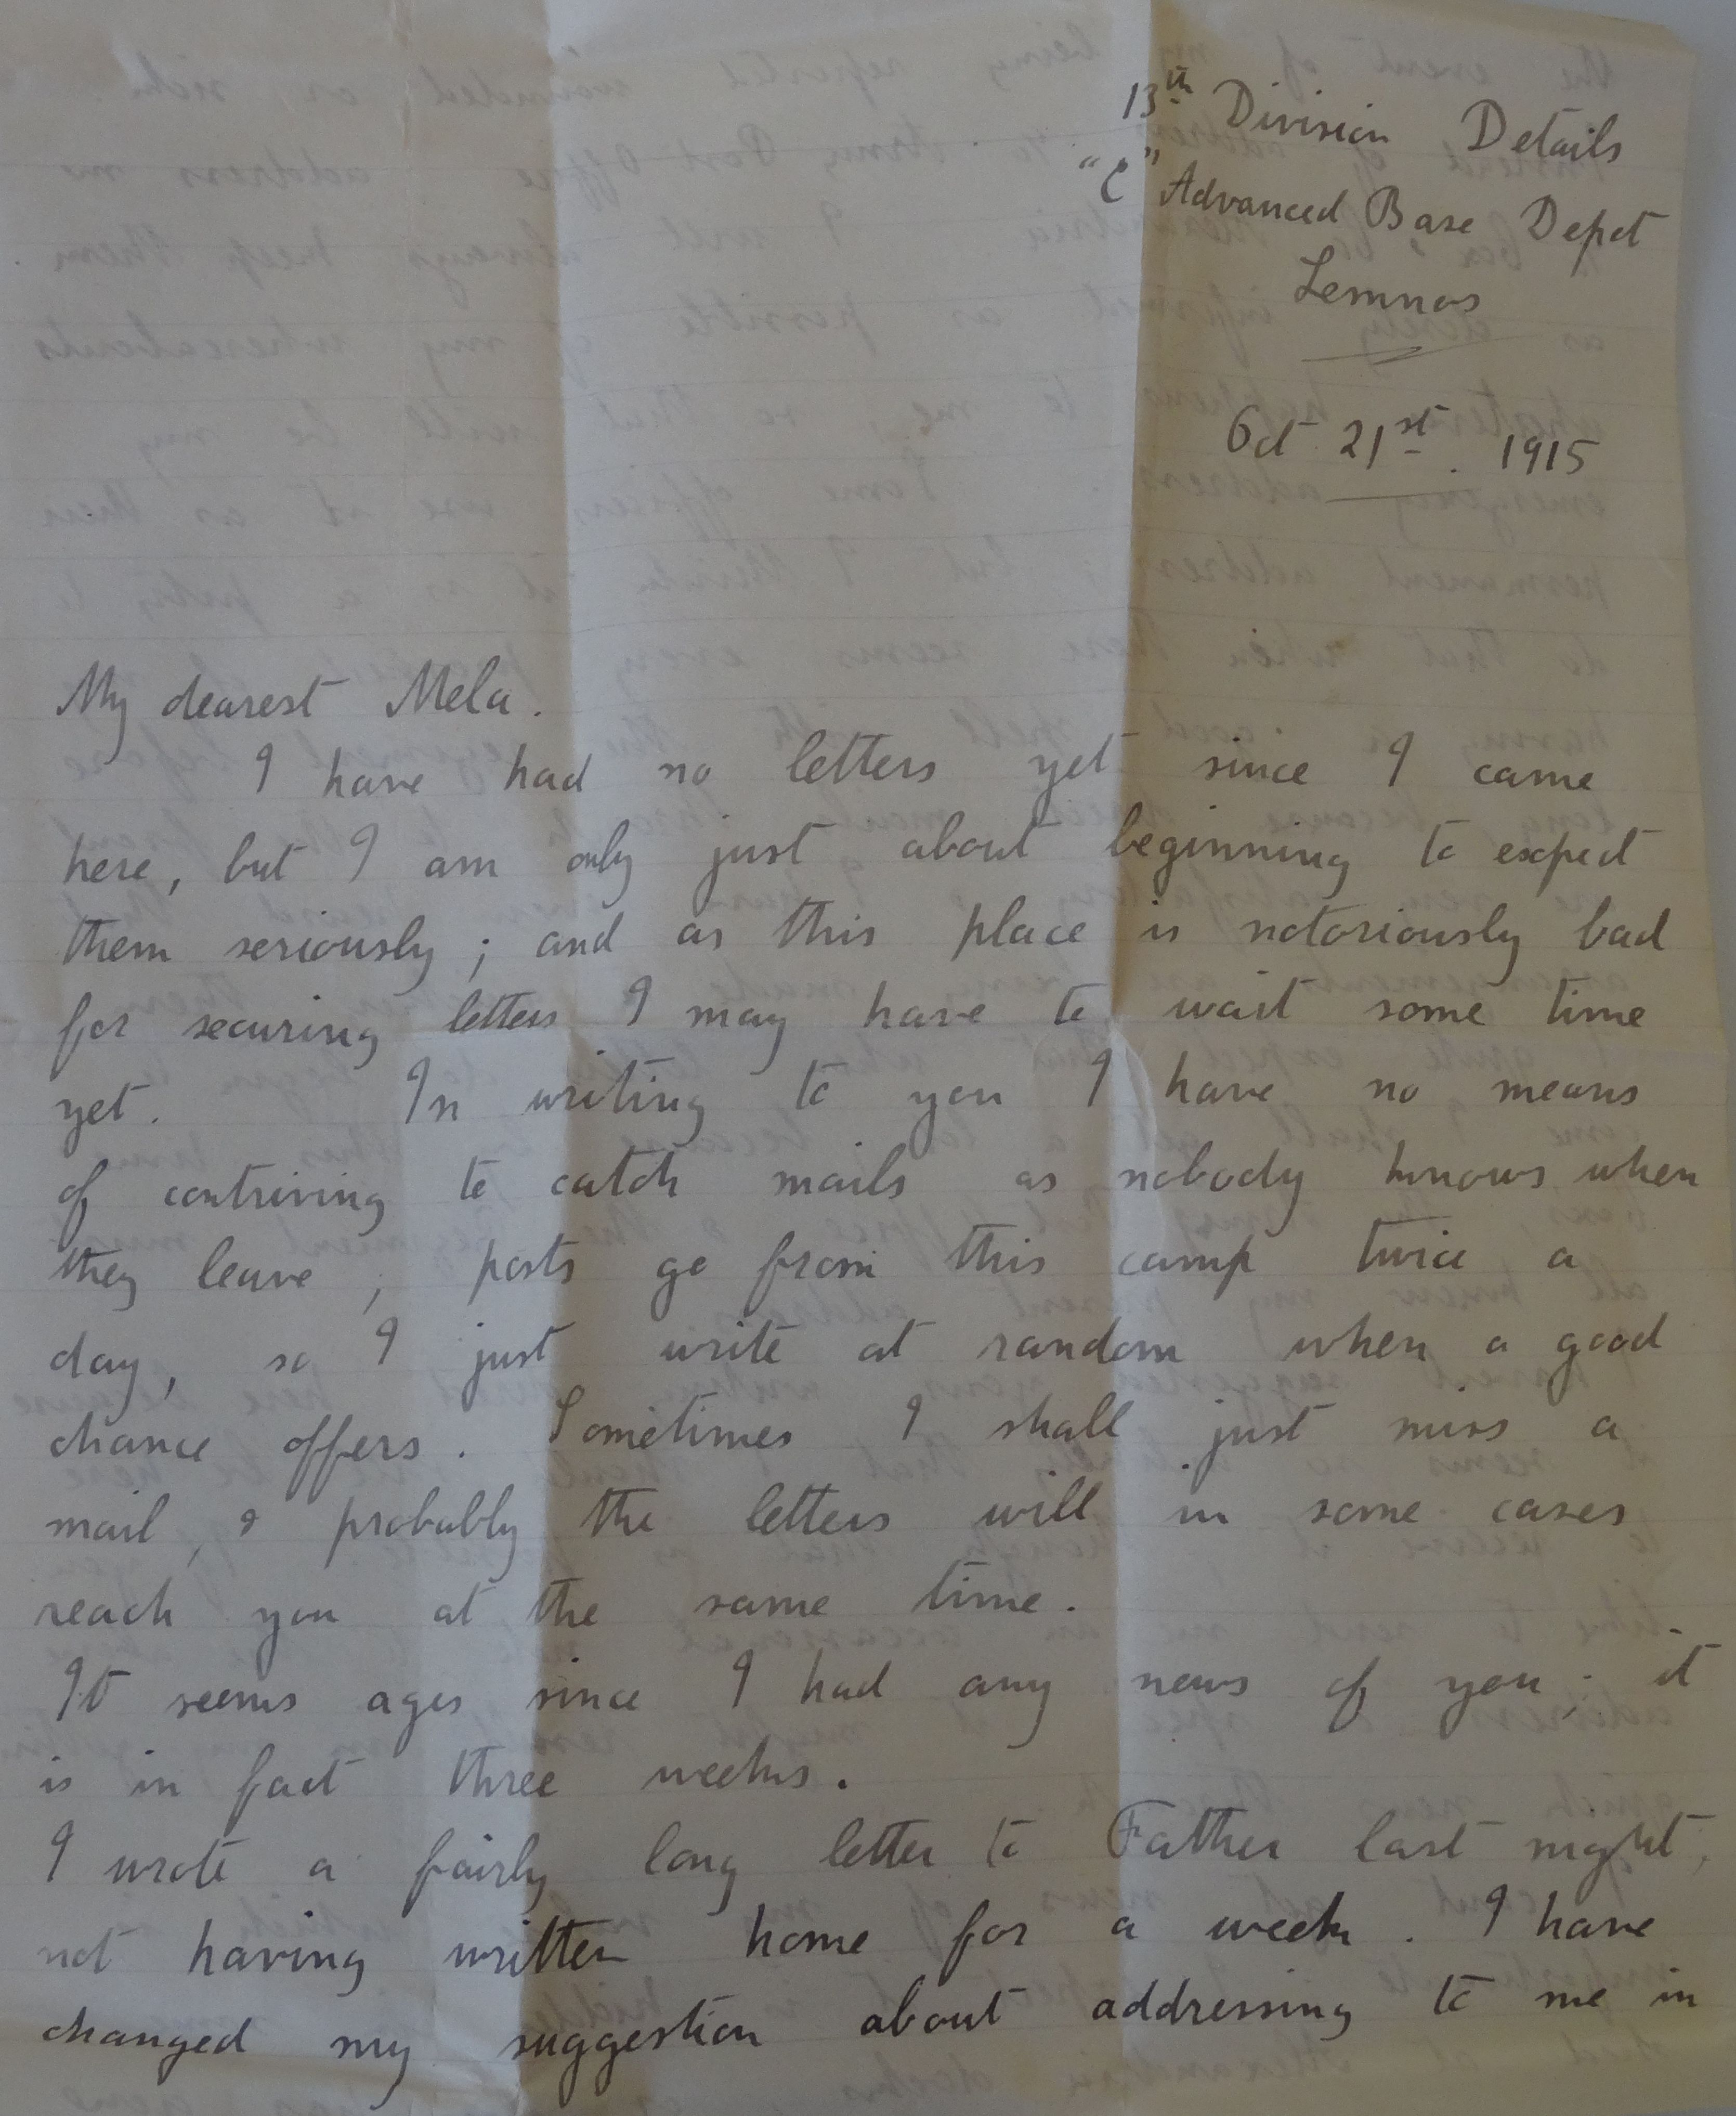 13th Division Details
"C" Advanced Base Depot
Lemnos
Oct 21st. 1915
My dearest Mela.
I have had no letters yet since I came
here, but I am only just about beginning to expect
them seriously; and as this place is notoriously bad
for securing letters I may have to wait some time
yet. In writing to you I have no means
of contriving to catch mails as nobody knows when
they leave; posts go from this camp twice a
day, so I just write at random when a good
chance offers. Sometimes I shall just miss a
mail, & probably the letters will in some cases
reach you at the same time.
It seems ages since I had any news of you; it
is in fact three weeks.
I wrote a fairly long letter to Father last night,
not having written home for a week. I have
changed my suggestion about addressing to me in